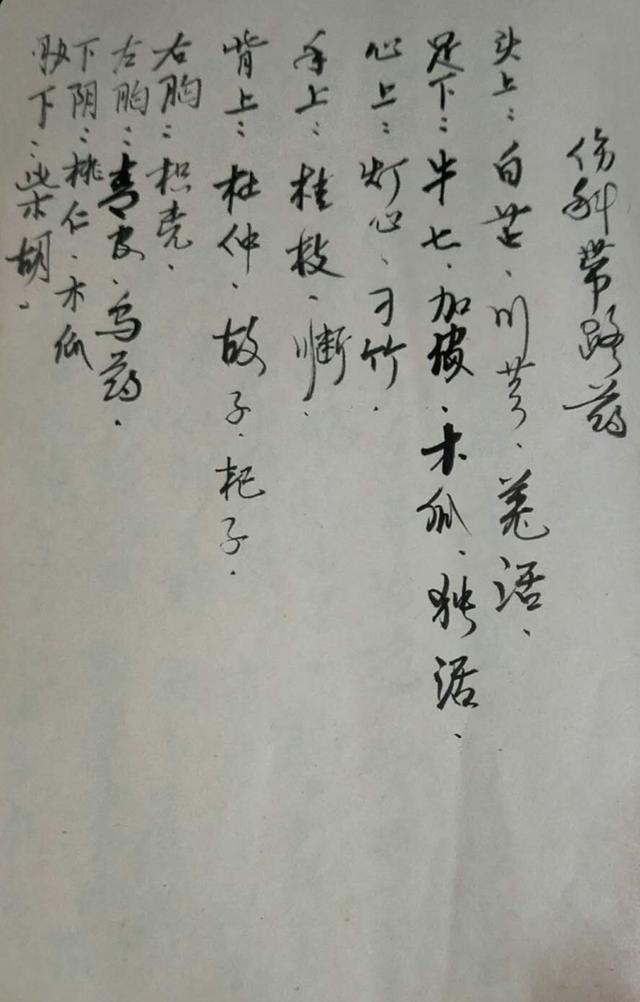 伤科带路药
头上：白芷、川芎、羌活、
足下：牛七、加皮、木瓜、独活、
心上：灯心、刁竹、
手上：桂枝、川断、
背上：杜仲、故子、杞子、
右胸：枳壳、
左胸：青皮、乌药、
下阴：桃仁、木瓜
肋下：柴胡、